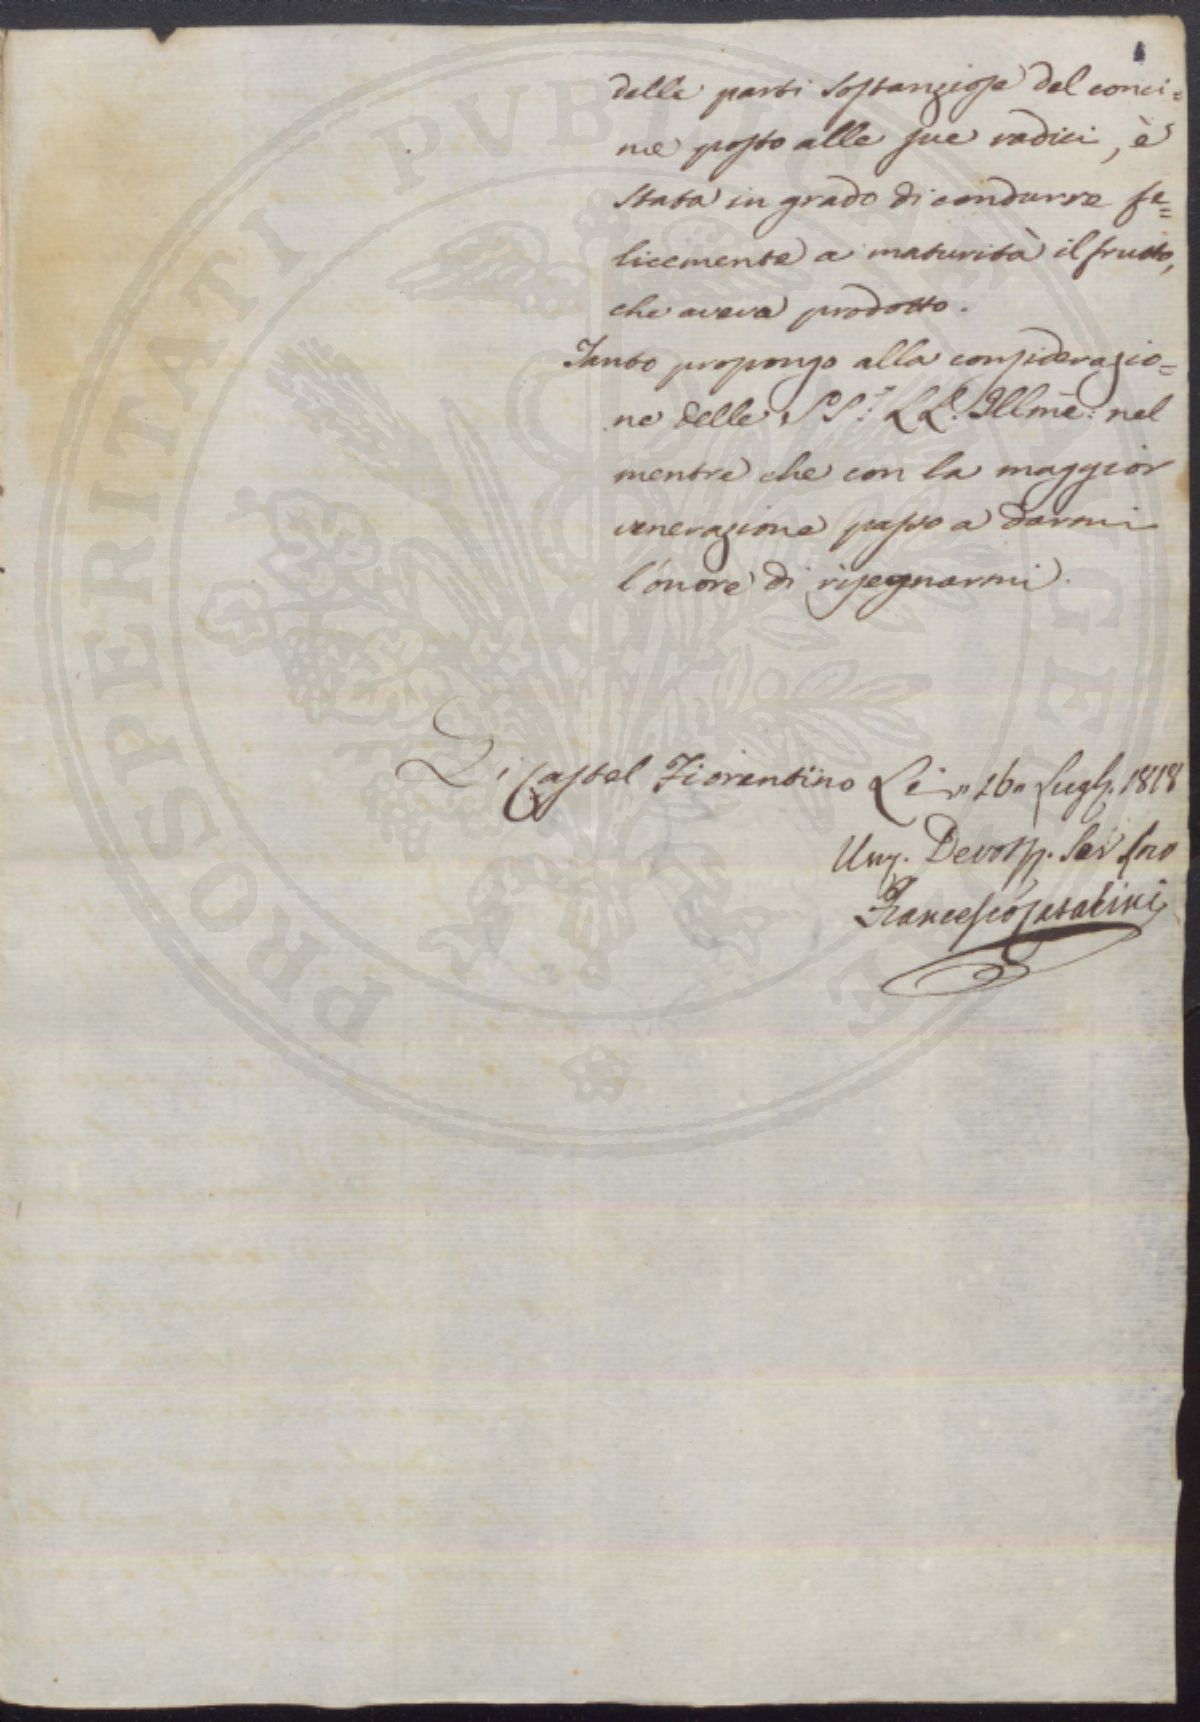 delle parti sostanziose del conci=
me posto alle sue radici, è
stata in grado di condurre fe=
licemente a maturità il frutto,
che aveva prodotto.
Tanto propongo alla considerazio=
ne delle SS.e LL. Illme: nel
mentre che con la maggior
venerazione passo a darmi
l'onore di risegnarmi.
Di Castel Fiorentino Li 16 Lugl. 1818
Um
Devotss. Ser
Francesco
PROSPERITATI PVBLICAE